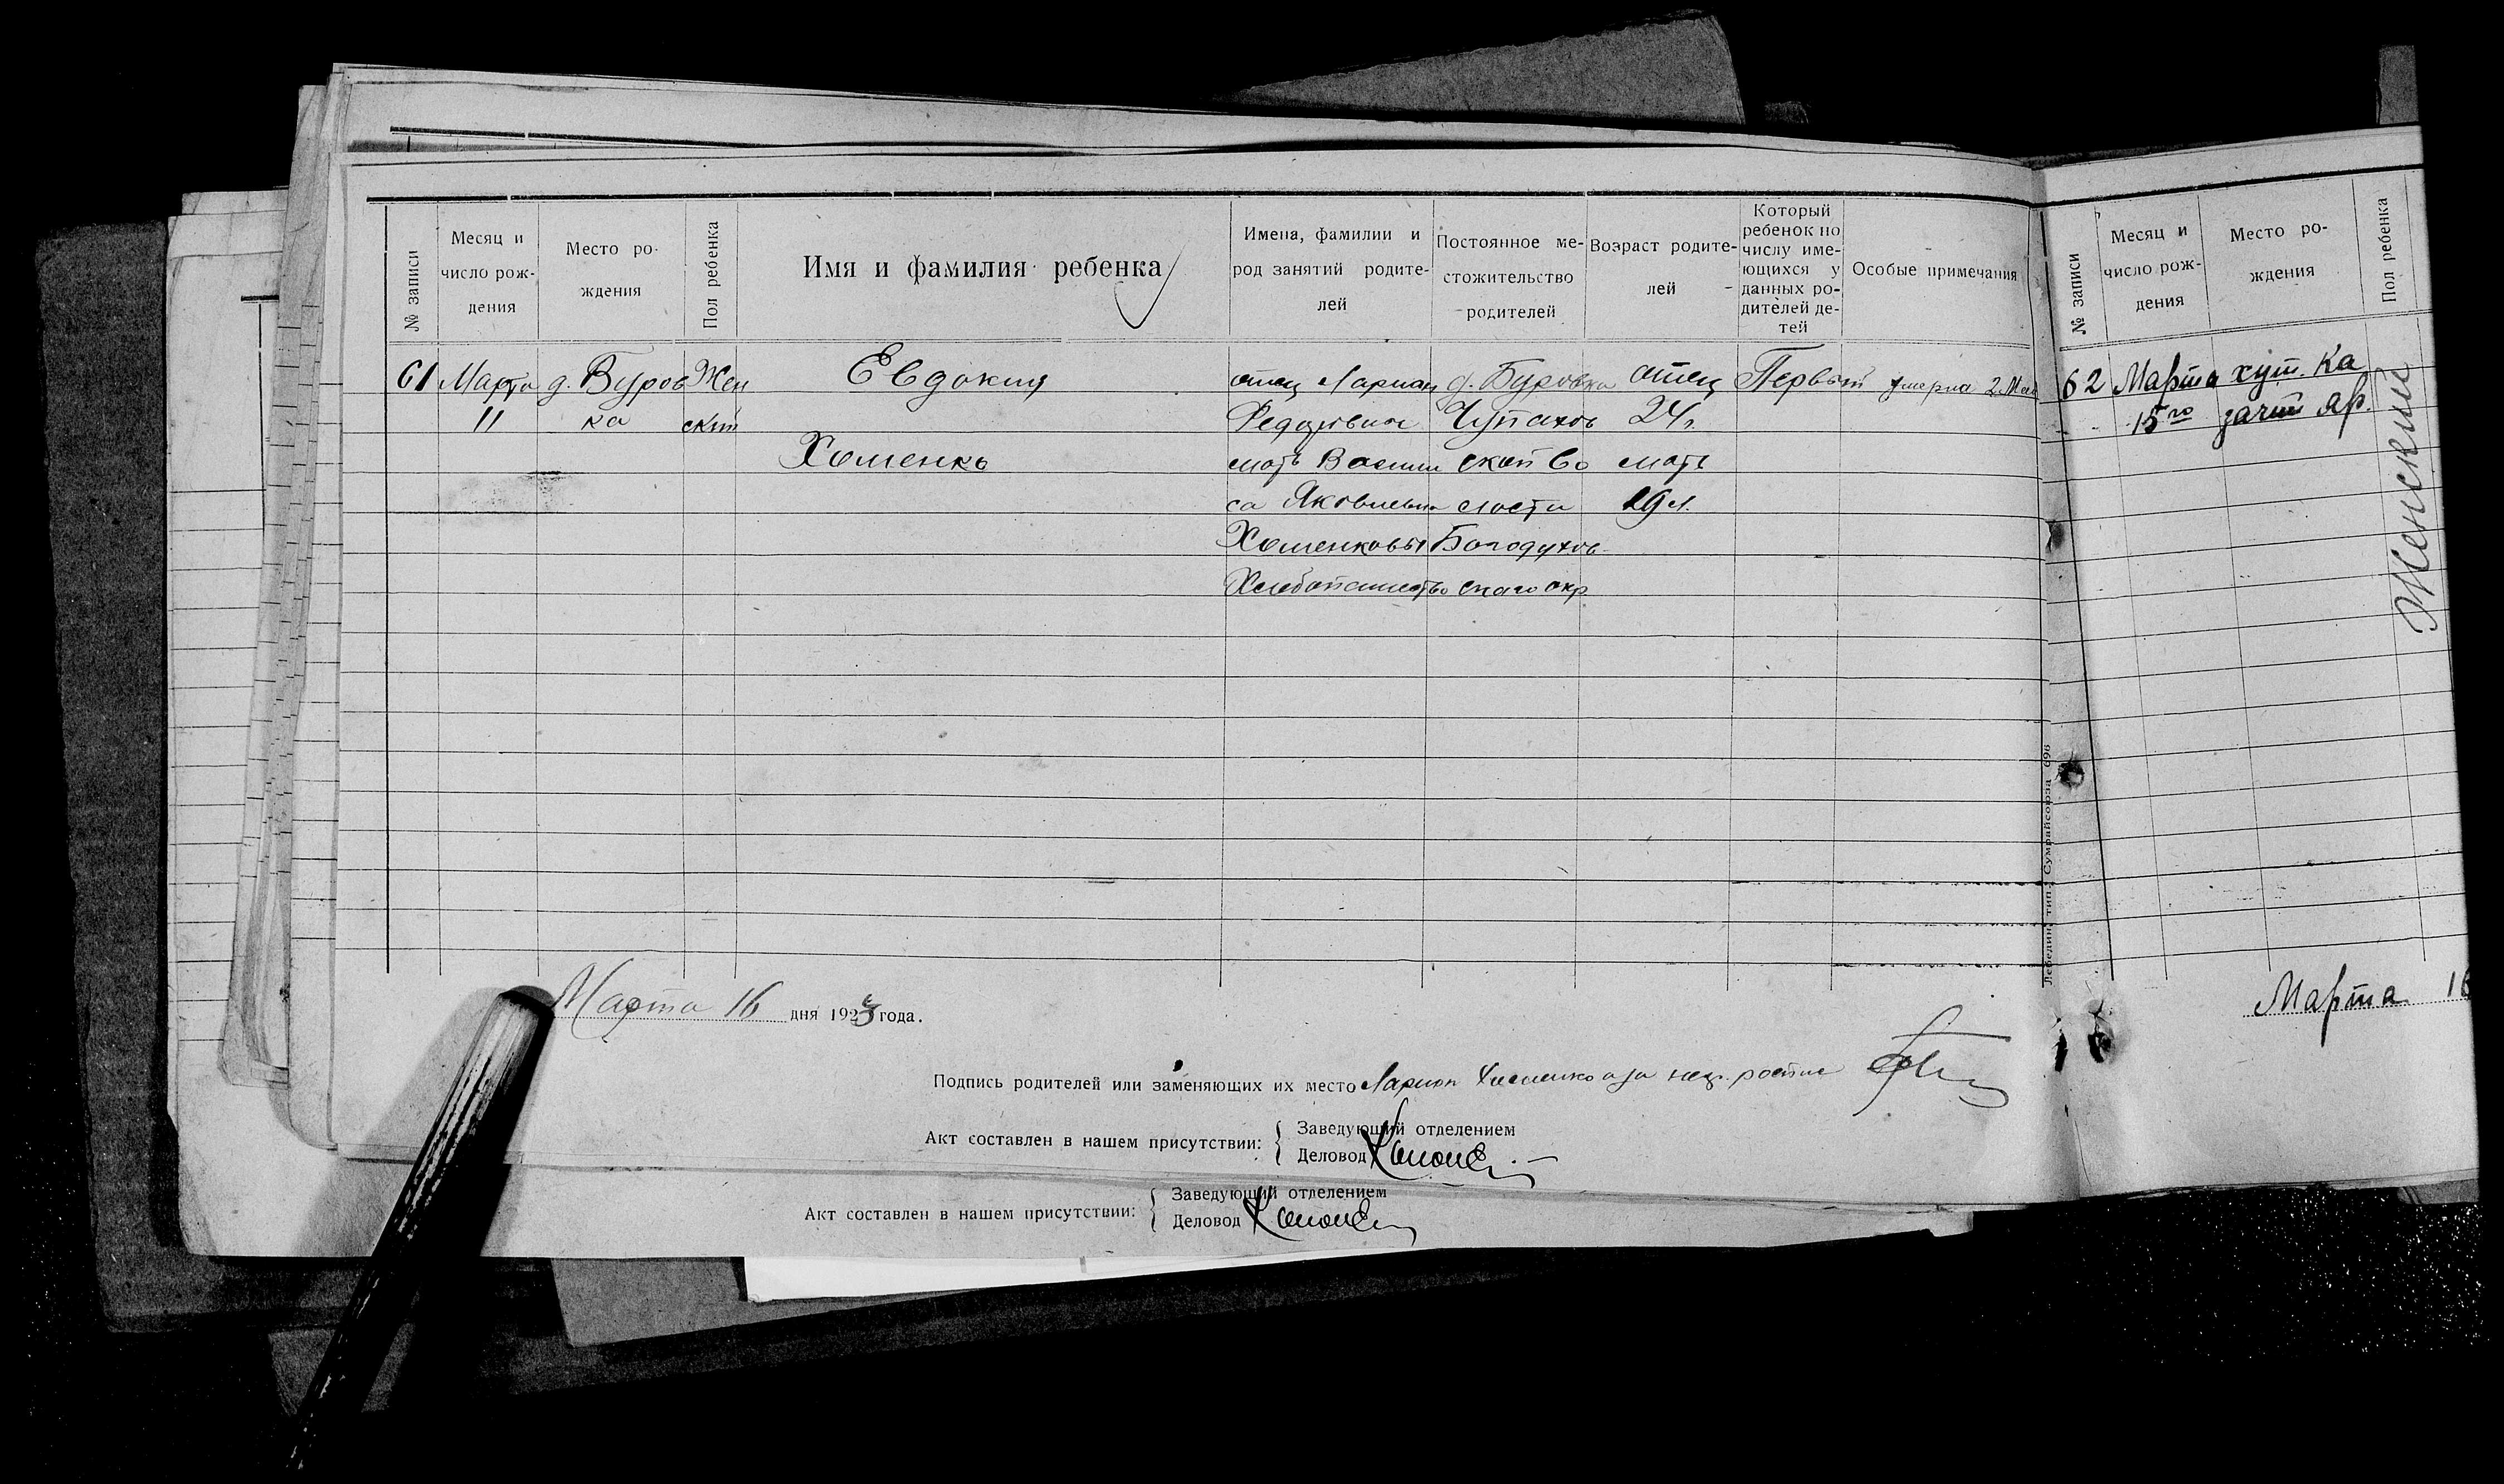 № записи
Месяц и
число рож-
дения
Место ро-
ждения
Пол ребенка
Имя и фамилия ребенка
Имена, фамилии и
род занятий родите-
лей
Постоянное ме-
стожительство
родителей
Возраст родите-
лей
Который
ребенок по
числу име-
ющихся у
данных ро-
дителей де-
тей
Особые примечания
61
Марта
11
д. Буров
ка
Жен
ский
Евдокия
Хоменко
отец Ларион
Федорович
мать Васили
са Яковлевна
Хоменковы
Хлебопашество
д. Буровка
Чупахов
ской во
лости
Богодухов
скаго окр
отец
24 л.
мать
19 л.
Первый
умерла 2 Мая
Марта 16 дня 1923 года.
Подпись родителей или заменяющих их место Ларион Хоменко а за нег.
Акт составлен в нашем присутствии:
Заведующий отделением
Деловод
Акт составлен в нашем присутствии:
Заведующий отделением
Деловод
Лебедин, тип. Сумрайсоюза 696
№ записи
Месяц и
число рож-
дения
Место ро-
ждения
Пол ребенка
62
Марта
15го
хут. Ка
зачий Яр.
Женский
Марта 16